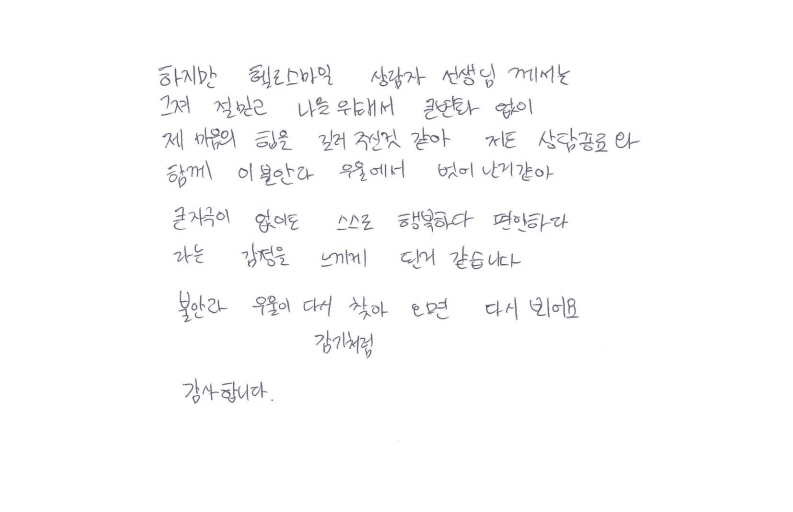 하지만 헬로스마일 상담자 선생님 께서는
그저 절 믿고 나를 위해서 큰변화 없이
제 마음의 힘을 길러 주신것 같아 저도 상담종료와
함께 이 불안과 우울에서 벗어 난거같아
큰자극이 없어도 스스로 행복하다 편안하다
라는 감정을 느끼게 된거 같습니다
불안과 우울이 다시 찾아 오면 다시 뵈어요
감기처럼
감사합니다.